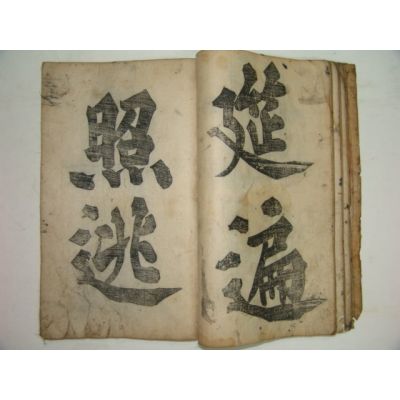 延遍
照逃